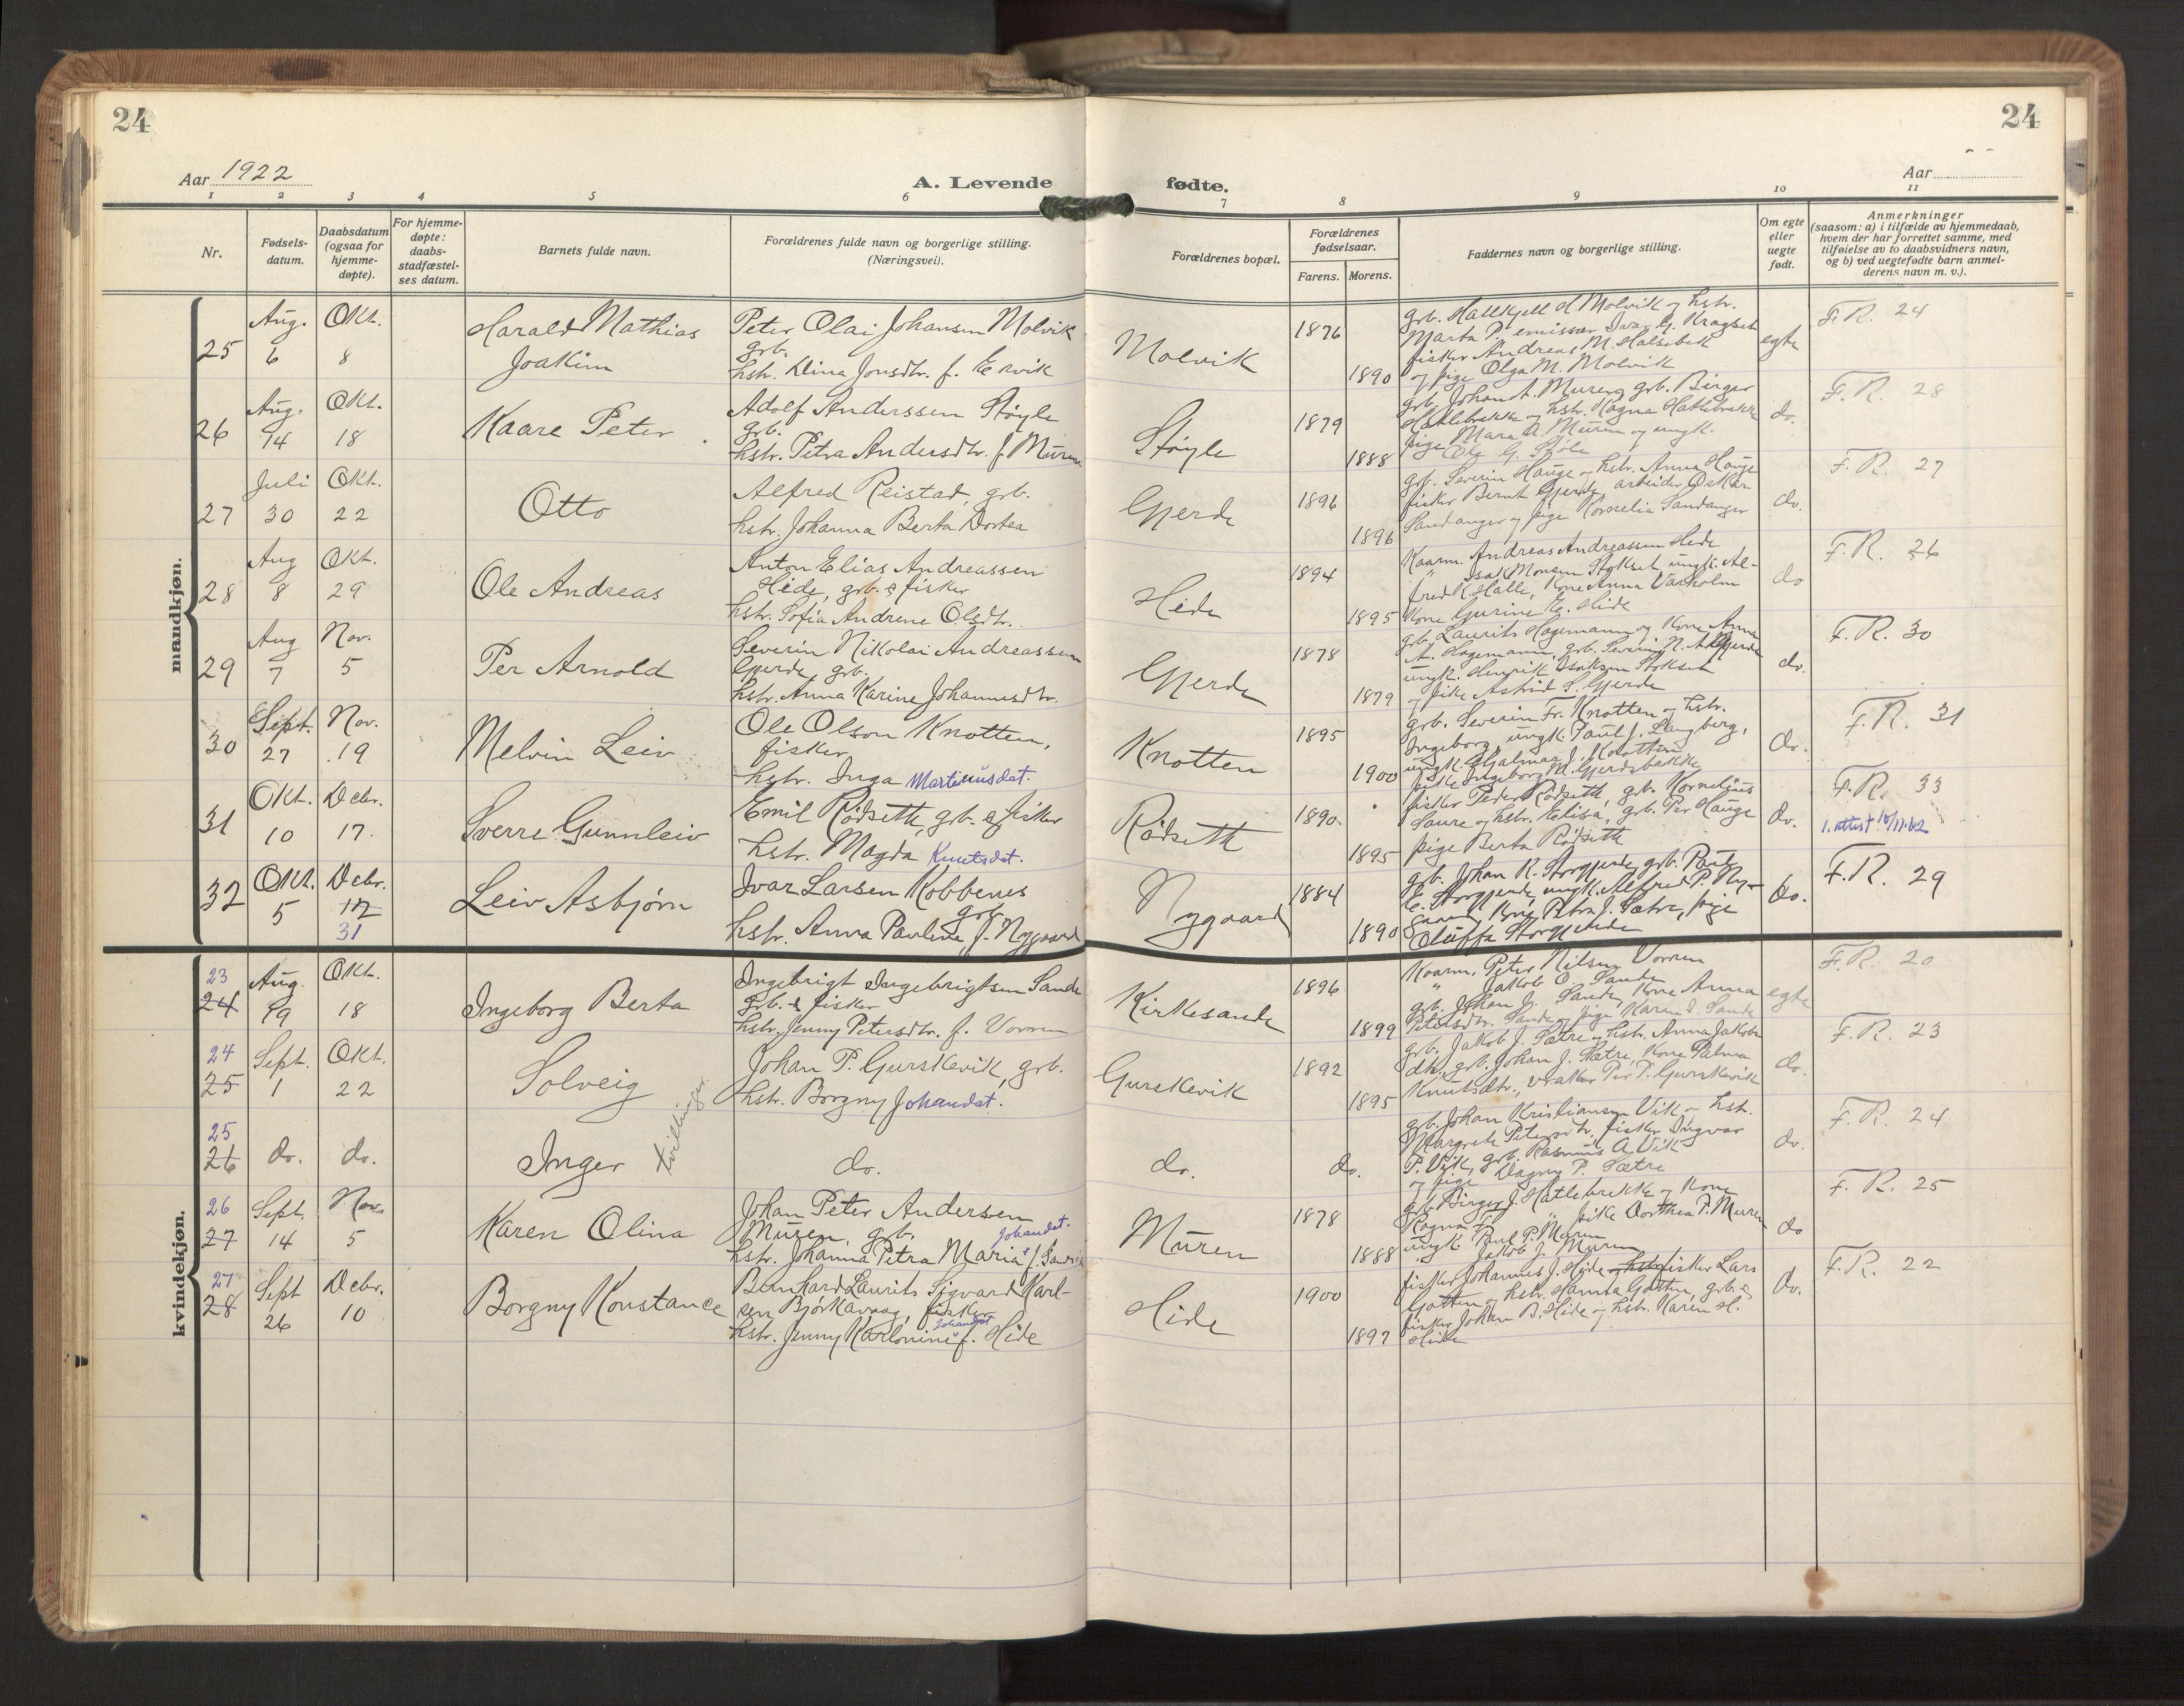 24
24
Aar 1922
A. Levende
fødte.
Aar
1
2
3
4
5
6
7
8
9
10
11
Nr.
Fødsels-
datum.
Daabsdatum
(ogsaa for
hjemme-
døpte).
For hjemme-
døpte:
daabs-
stadfæstel-
ses datum.
Barnets fulde navn.
Forældrenes fulde navn og borgerlige stilling.
(Næringsvei).
Forældrenes bopæl.
Forældrenes
fødselsaar.
Farens. Morens.
Faddernes navn og borgerlige stilling.
Om egte
eller
uegte
født.
Anmerkninger
(saasom: a) i tilfælde av hjemmedaab,
hvem der har forrettet samme, med
tilføielse av to daabsvidners navn,
og b) ved uegtefødte barn anmel-
derens navn m. v.).
mandkjøn.
25
Aug. 6
Okt. 8
Harald Mathias
Joakim
Peter Olai Johansen Molvik
grb.
hstr. Dina Jonsdtr. f. Ervik
Molvik
1876
1890
grb. Hallkjell H. Molvik og hstr.
Marta P. emissær Ivar G. Kragset
fisker Andreas M. Halsebek
og pige Olga M. Molvik
egte
F.R. 24
26
Aug. 14
Okt. 18
Kaare Peter
Adolf Anderssen Støyle
grb.
hstr. Petra Andersdtr. f. Muren
Støyle
1879
1888
grb. Johan A. Muren, grb. Birger
Hatlebrekke og hstr. Ragna Hatlebrekke
pige Mara A. Muren og ungk.
Ole G. Støle
do.
F.R. 28
27
Juli 30
Okt. 22
Otto
Alfred Reistad, grb.
hstr. Johanna Berta Dortea
Gjerde
1896
1896
grb. Severin Hauge og hstr. Anna Hauge
fisker Bernt Gjerde, arbeider Oskar
Sandanger og pige Kornelia Sandanger
do.
F.R. 27
28
Aug 8
Okt. 29
Ole Andreas
Anton Elias Andreassen
Hide, grb. & fisker
hstr. Sofia Andrene Olsdtr.
Hide
1894
1895
Kaarm. Andreas Andreassen Hide
" Isak Monsen Stokset, ungk. Al-
fred K. Halle, Kone Anna Vaxholm
Kone Gurine E. Hide
do
F.R. 26
29
Aug 7
Nov. 5
Per Arnold
Severin Nikolai Andreassen
Gjerde, grb.
hstr. Anna Karine Johannesdtr.
Gjerde
1878
1879
grb. Laurits Hagemann og Kone Anna
A. Hagemann, grb. Severin N. A. Gjerde
ungk. Henrik Isaksen Stokset
og pike Astrid S. Gjerde
do.
F.R. 30
30
Sept. 27
Nov. 19
Melvin Leiv
Ole Olson Knotten,
fisker
hstr. Inga Martinusdat.
Knotten
1895
1900
grb. Severin Fr. Knotten og hstr.
Ingeborg, ungk. Paul J. Langberg,
ungk. Hjalmar J. Knotten
pike Ingeborg M. Gjerdsbakke
do.
F.R. 31
31
Okt. 10
Debr. 17.
Sverre Gunnleiv
Emil Rødseth, grb. & fisker
hstr. Magda Knutsdat.
Rødseth
1890.
1895
fisker Peder Rødseth, grb. Kornelius
Saure og hstr. Elisa, grb. Per Hauge
pige Berta Rødseth
do.
F.R. 33
1. attest 10/11.62
32
Okt. 5
Debr. 17
31
Leiv Asbjørn
Ivar Larsen Kobbenes
grb.
hstr. Anna Pauline f. Nygaard
Nygaard
1884
1890
grb. Johan R. Storgjerde, grb. Paul
E. Storgjerde, ungk. Alfred P. Ny-
gaard, Kone Petra J. Sætre, pige
Oluffa Storgjerde
do.
F.R. 29
kvindekjøn.
23
24
Aug. 19
Okt. 18
Ingeborg Berta
Ingebrigt Ingebrigtsen Sande
grb. & fisker
hstr. Jenny Petersdtr. f. Vorren
Kirkesande
1896
1899
Kaarm. Peter Nilsen Vorren
" Jakob O. Sande
grb. Johan J. Sande, Kone Anna
Petersdtr. Sande og pige Karen I. Sande
egte
F.R. 20
24
25
Sept. 1
Okt. 22
Solveig
Johan P. Gurskevik, grb.
hstr. Borgny Johandat.
Gurskevik
1892
1895
grb. Jakob J. Sætre og hstr. Anna Jakobs
dtr., grb. Johan J. Sætre, Kone Palma
Knutsdtr., vraker Per P. Gurskevik
do.
F.R. 23
25
26
do.
do.
Inger
tvillinger
do.
do.
do.
grb. Johan Kristiansen Vik og hstr.
Margrete Petersdtr. fisker Ingvar
P. Vik, grb. Rasmus A. Vik
og pige Dagny P. Sætre
do.
F.R. 24
26
27
Sept. 14
Nov. 5
Karen Olina
Johan Peter Andersen
Muren, grb. Johandat.
hstr. Johanna Petra Maria f.
Muren
1878
1888
grb. Birger J. Hatlebrekke og Kone
Ragna " pike Dorthea P. Muren
ungk. Paul P. Muren
" Jakob J. Muren
do
F.R. 25
27
28
Sept 26
Debr. 10
Borgny Konstance
Bernhard Laurits Sigvard Karl-
sen Bjørkavaag, fisker
Johandat
hstr. Jenny Karlonine f. Hide
Hide
1900
1897
fisker Johannes J. Hide og hstr fisker Lars
Gotten og hstr. Hanna Gotten, grb. &
fisker Johan B. Hide og hstr. Karen H.
Hide
do.
F.R. 22